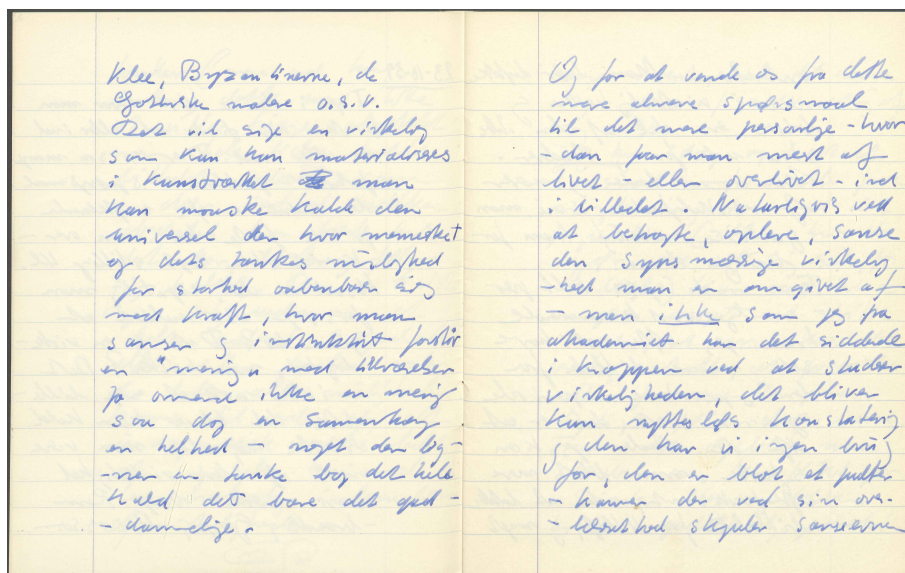 Klee, Byzantinerne, de
Gothiske malere o.s.v.
Det vil sige en virkelig
som kun kan materialiseres
i kunstværket man
kan maaske kalde den
universel der hvor mennesket
og dets tankes mulighed
for storhed aabenbarer sig
med kraft, hvor man
sanser og instinktivt forstår
en "mening" med tilværelsen
ja omend ikke en mening
som dog en sammenhæng
en helhed – noget der lig-
-ner en tanke bag det hele
kald det bare det gud-
-dommelige.
Og for at vende os fra dette
mere almene spørgsmaal
til det mere personlige – hvor
-dan faar man mest af
livet – eller overlivet – ind
i billedet. Naturligvis ved
at betragte, opleve, sanse
den synsmæssige virkelig
-hed man er omgivet af
– men ikke som jeg fra
akademiet har det siddende
i kroppen ved at studere
virkeligheden, det bliver
kun nytteløs konstatering
og den har vi ingen brug
for, den er blot et pulter-
-kammer der ved sin over-
-læssethed skjuler sanserne